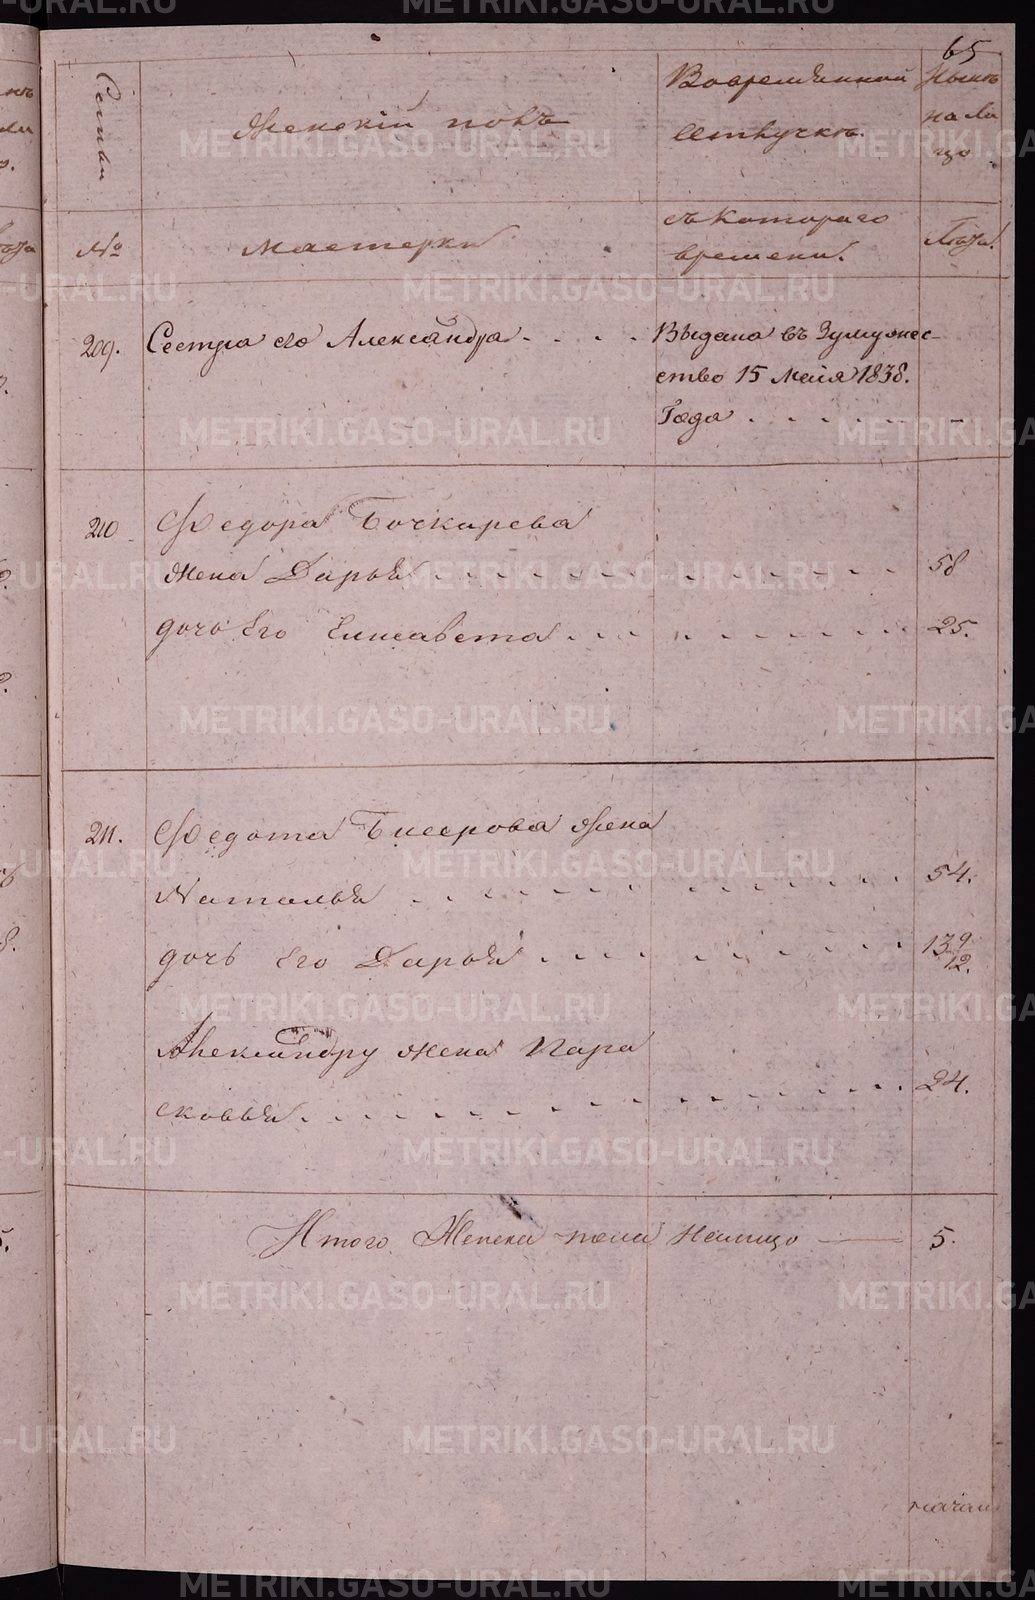 65
Семьи
Женскій полъ
Вовременной
отлучкѣ.
Нынѣ
на ли
цо
№
мастерки
съ котораго
времени.
Лѣта.
209. Сестра его Александра . . . . Выдана въ Зумужес-
ство 15 Маія 1838.
Года . . . . . . -
210 Федора Бочкарева
жена Дарья . . . . . . . . . . . . 58
дочь Его Елисавета . . . . . . . . . 25.
211. Федота Бисерова жена
Наталья . . . . . . . . . . . . 54.
дочь Его Дарья . . . . . . . . . 13 9/12.
Александру жена Пара
сковья . . . . . . . . . . . . 24.
Итого Женска пола налицо — 5.
METRIKI.GASO-URAL.RU